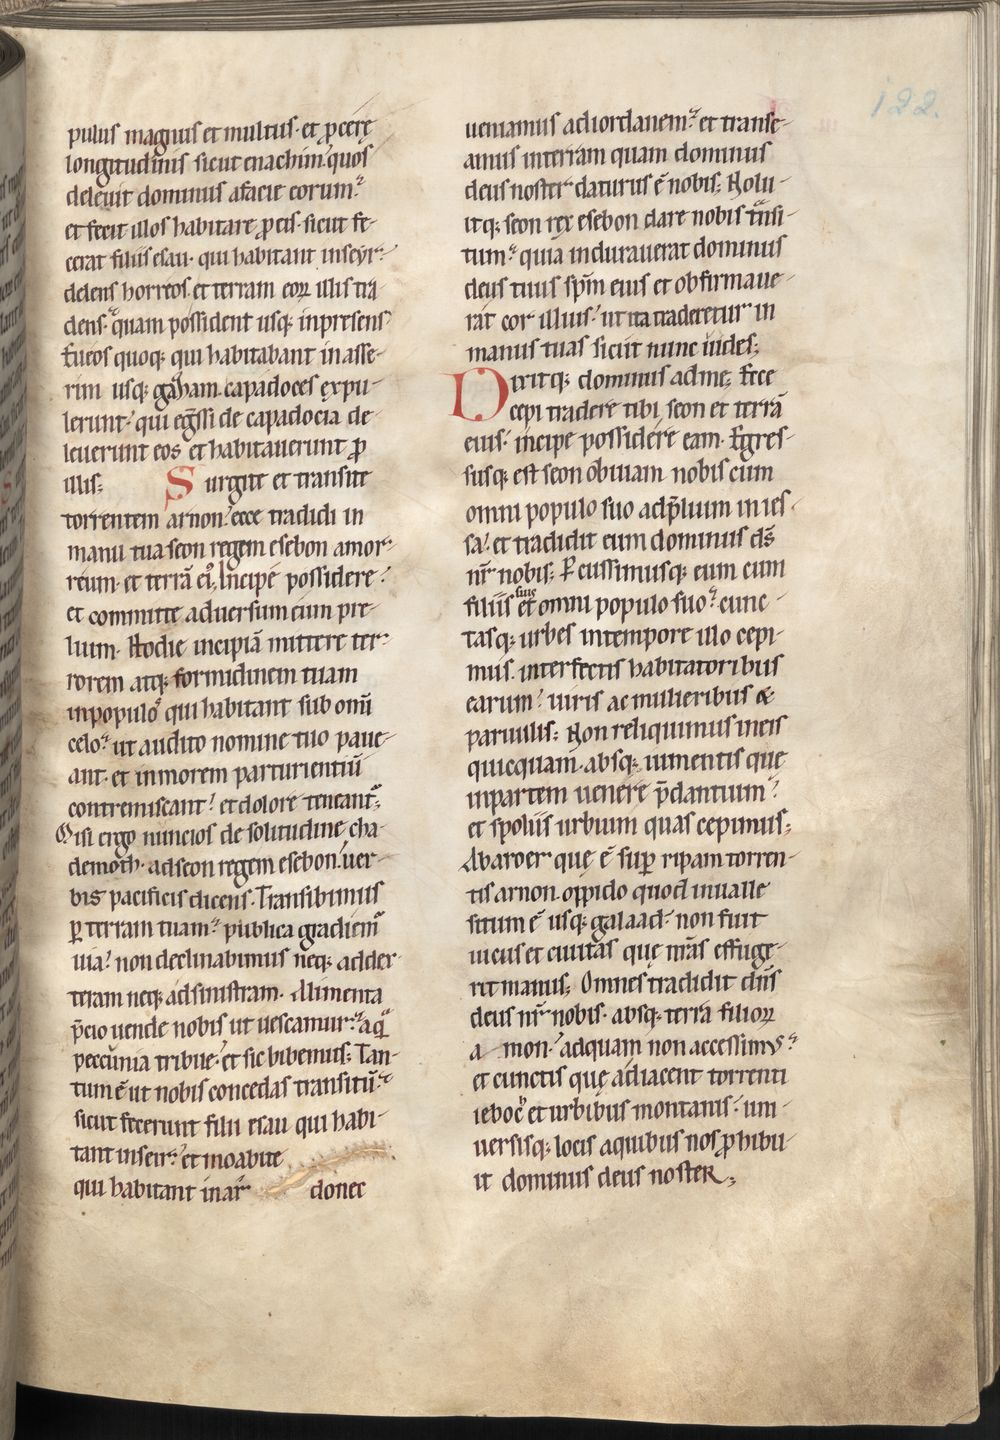 122.
pulus magnus et multus· et ꝓcerę
longitudinis sicut enachim· quos
deleuit dominus afacie eorum·
et fecit illos habitare ꝓ eis· sicut fe-
cerat filiis esau· qui habitant inseyr·
delens horreos· et terram eoꝝ illis tra
dens· quam possident usq; inpresens·
Eueos quoq; qui habitabant inasse-
rim usq; gazham· capadoces expu-
lerunt· qui eg̃ssi de capadocia de-
leuerunt eos et habitauerunt ꝓ
illis; Surgite et transite
torrentem arnon· ecce tradidi in
manu tua seon regem esebon amor-
reum· et terrā ei᾽, Incipe possidere·
et committe aduersum eum pre-
lium· Hodie incipiā mittere ter-
rorem atq; formidinem tuam
inpopulos qui habitant sub omī
celo· ut audito nomine tuo paue-
ant· et inmorem parturientiū
contremiscant· et dolore teneant᷑;
Misi ergo nuncios de solitudine cha-
demoth· adseon regem esebon· uer-
bis pacificis dicens· Transibimus
ꝑ terram tuam· publica gradiem᷑
uia· non declinabimus neq; addex-
teram neq; adsinistram· Alimenta
p̄cio uende nobis ut uescamur· aq̄
peccunia tribue· et sic bibemus; Tan-
tum ē ut nobis concedas transitū·
sicut fecerunt filii esau qui habi-
tant inseir· et moabite
qui habitant inar donec
ueniamus adiordanem· et transe-
amus interram quam dominus
deus noster daturus ē nobis; Nolu-
itq; seon rex esebon dare nobis tͣnsi-
tum· quia indurauerat dominus
deus tuus sp̄m eius et obfirmaue-
rat cor illius· ut ita traderetur in
manus tuas sicut nunc uides;
Dixitq; dominus adme; Ecce
cepi tradere tibi seon et terrā
eius· incipe possidere eam· Egres-
susq; est seon obuiam nobis cum
omni populo suo adp̄lium in ies-
sa· et tradidit eum dominus d̄s
nr̄ nobis; Percussimusq; eum cum
filiis suis et omni populo suo· cunc-
tasq; urbes intempore illo cepi-
mus· interfectis habitatoribus
earum· uiris ac mulieribus &
paruulis; Non reliquimus ineis
quicquam· absq; iumentis quę
inpartem uenere p̄dantium·
et spoliis urbium quas cepimus;
Abaroer quę ē suꝑ ripam torren-
tis arnon· oppido quod inualle
situm ē usq; galaad· non fuit
uicus et ciuitas quę nr̄as effuge-
rit manus; Omnes tradidit dn̄s
deus nr̄ nobis· absq; terra filioꝝ
a mon· adquam non accessim᾽·
et cunctis quę adiacent torrenti
ieboc· et urbibus montanis· uni-
uersisq; locis aquibus nos ꝓhibu-
it dominus deus noster;